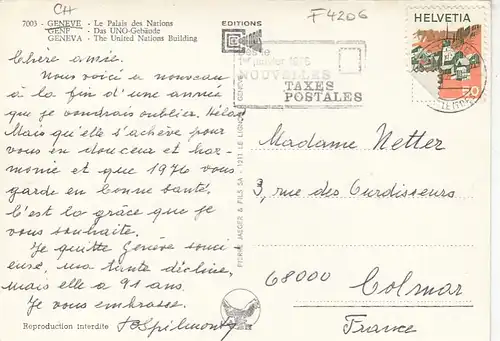 CH
F4206
7003 - GENEVE - Le Palais des Nations
GENF - Das UNO-Gebäude
GENEVA - The United Nations Building
EDITIONS
HELVETIA
70
1er janvier 1976
NOUVELLES
TAXES
POSTALES
Chère amie.
Nous voici à nouveau
à la fin d'une année
que je voudrais oublier. Hélas!
Mais qu'elle s'achève pour
vous en douceur et har-
monie et que 1976 vous
garde en bonne santé.
C'est la grâce que je
vous souhaite.
Je quitte Genève souci
euse, ma tante décline,
mais elle a 91 ans.
Je vous embrasse.
Reproduction interdite
JAEGER & FILS SA - 1211 LE LIGNON
Madame Netter
3, rue des Ourdisseurs
68000 Colmar
France